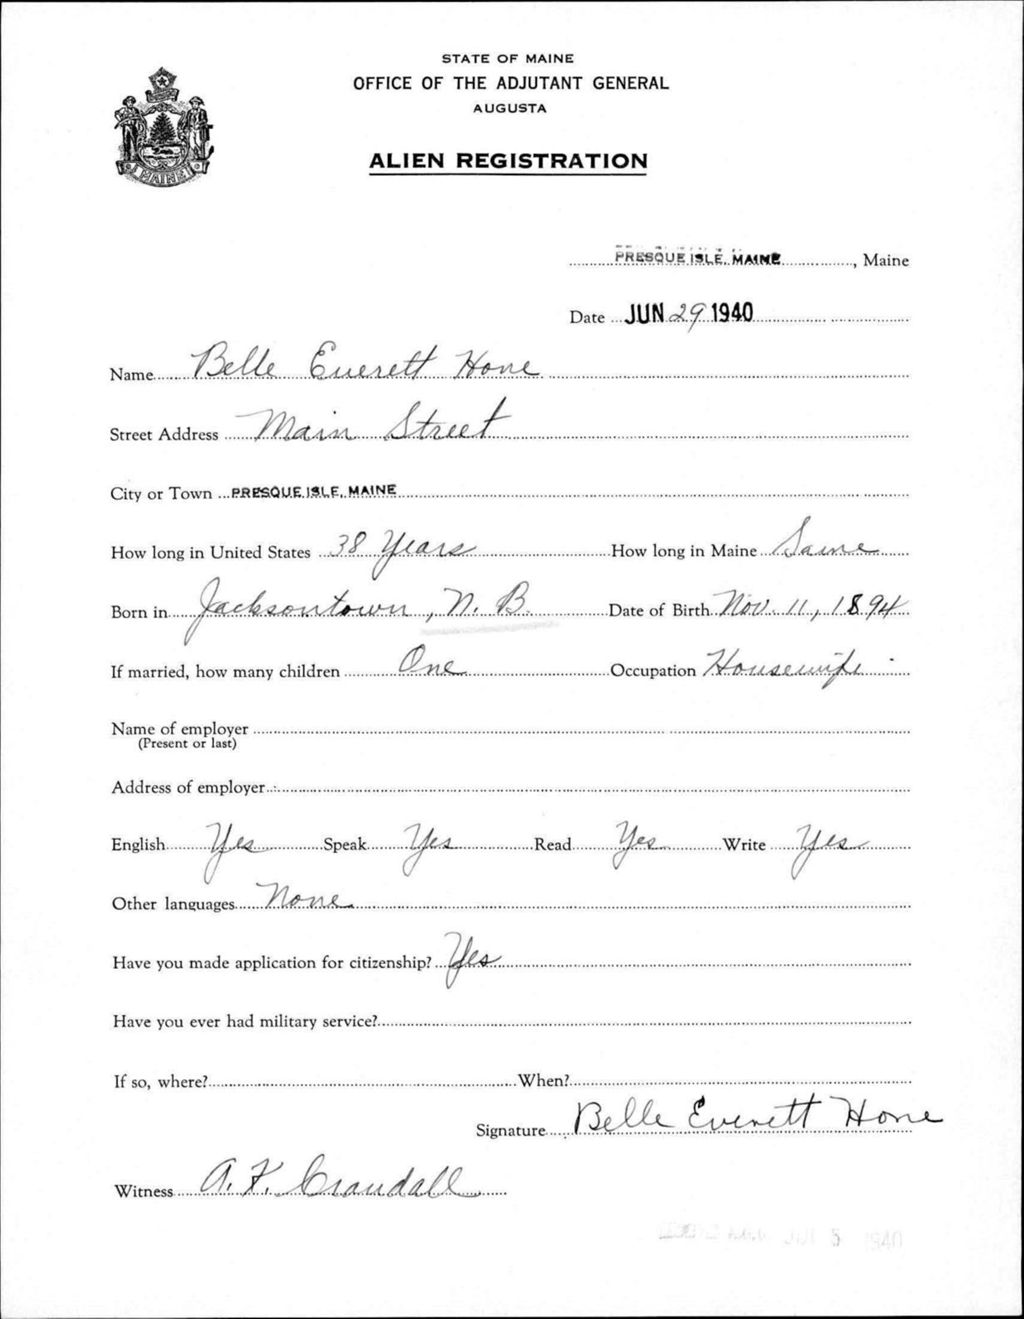 STATE OF MAINE
OFFICE OF THE ADJUTANT GENERAL
AUGUSTA
ALIEN REGISTRATION
MAINE
PRESQUE ISLE, MAINE, Maine
Date JUN 29 1940
Name Belle Everett Hone
Street Address Main Street
City or Town PRESQUE ISLE, MAINE
How long in United States 38 Years How long in Maine Same
Born in Jacksontown, N. B. Date of Birth Nov. 11, 1894
If married, how many children One Occupation Housewife
Name of employer
(Present or last)
Address of employer
English Yes Speak Yes Read Yes Write Yes
Other languages None
Have you made application for citizenship? Yes
Have you ever had military service?
If so, where? When?
Signature Belle Everett Hone
Witness A. F. Crandall
1940